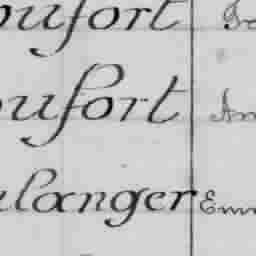 oufort
oufort An
ulanger Em